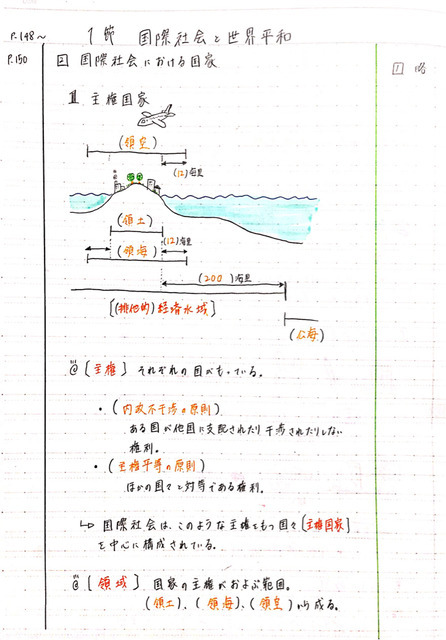 P.148～ 1節 国際社会と世界平和
P.150 2 国際社会における国家
1 略
1 主権国家
(領空)
(12)海里
(領土)
(領海) (12)海里
(200)海里
[(排他的)経済水域]
(公海)
@ [主権] それぞれの国がもっている。
・(内政不干渉の原則)
ある国が他国に支配されたり干渉されたりしない
権利。
・(主権平等の原則)
ほかの国々と対等である権利。
↳ 国際社会は、このような主権をもつ国々[主権国家]
を中心に構成されている。
@ [領域] 国家の主権がおよぶ範囲。
(領土)、(領海)、(領空)から成る。